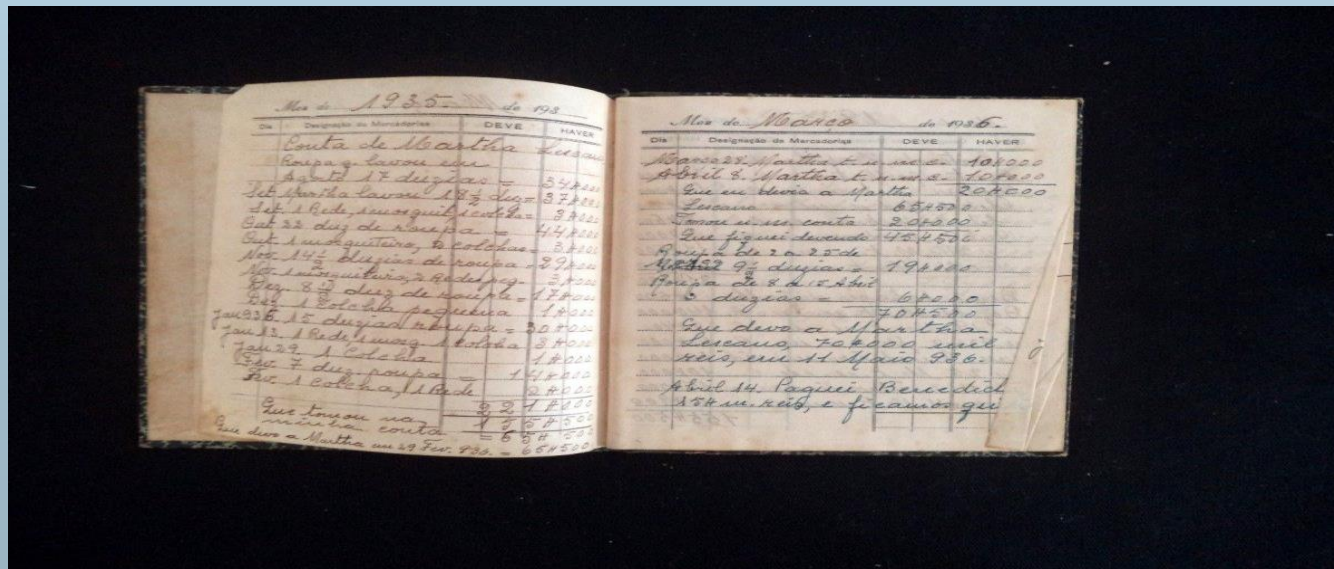 Mez de 1935 de 193
Dia Designação de Mercadorias DEVE HAVER
Conta de Martha Lescano
Roupa q. lavou em
Agosto 17 duzias = 34$000
Set. Martha lavou 18 1/2 duz = 37$000
Set. 1 Rede, 1 mosquit. 1 colcha = 3$000
Out 22 duz de roupa = 44$000
Out. 1 mosquiteiro, 2 colchas = 3$000
Nov. 14 1/2 duzias de roupa = 29$000
Nov. 1 mosquiteiro, 2 Redes peq. 3$000
Dez. 8 1/2 duz de roupa = 17$000
Dez. 1 Colcha pequena 1$000
Jan 936. 15 duzias roupa = 30$000
Jan 13. 1 Rede, 1 mosq. 1 colcha 3$000
Jan 29 1 Colcha 1$000
Fev. 7 duz. roupa = 14$000
Fev. 1 Colcha, 1 Rede 2$000
221$000
Que tomou na 155$500
minha conta = 65$500
Que devo a Martha em 29 Fev. 936. = 65$500
Mez de Março de 1936.
Dia Designação de Mercadorias DEVE HAVER
Março 28. Martha t. n. m. c. 10$000
Abril 8. Martha t. n. m. c. 10$000
Que eu devia a Martha 20$000
Lescano 65$500
Tomou n. m. conta 20$000
Que fiquei devendo 45$500
Roupa de 2 a 25 de
9 1/2 duzias = 19$000
Roupa de 8 a 15 Abril
3 duzias = 6$000
70$500
Que devo a Martha
Lescano, 70$000 mil
reis, em 11 Maio 936.
Abril 14. Paguei Benedict
15$ m. reis, e ficamos qui